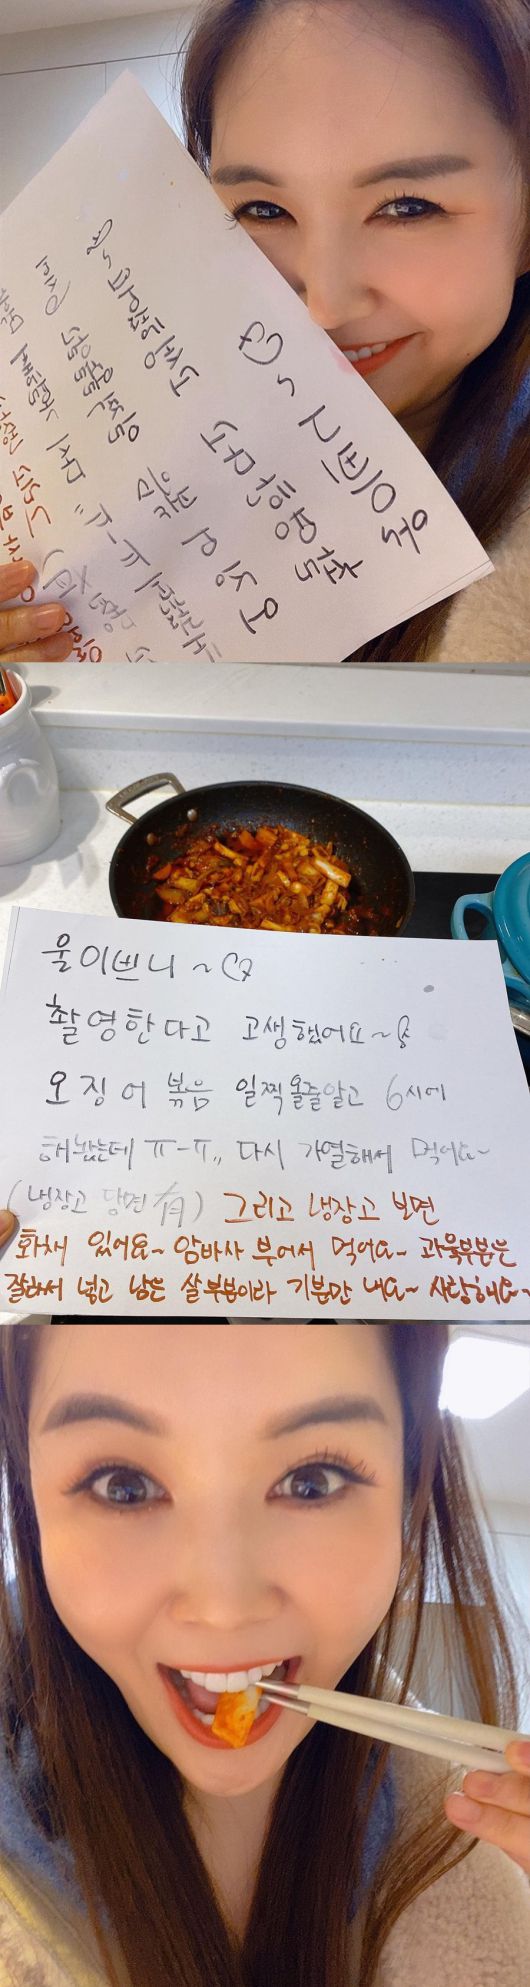 울이쁘니~♡
촬영한다고 고생했어요~
오징어 볶음 일찍 올줄알고 6시에
해놨는데 ㅠ-ㅠ,, 다시 가열해서 먹어요~
(냉장고 당면 有) 그리고 냉장고 보면
화채 있어요~ 암바사 부어서 먹어요~ 과육부분은
잘라서 넣고 남은 살부분이라 기분만 내요~ 사랑해요~